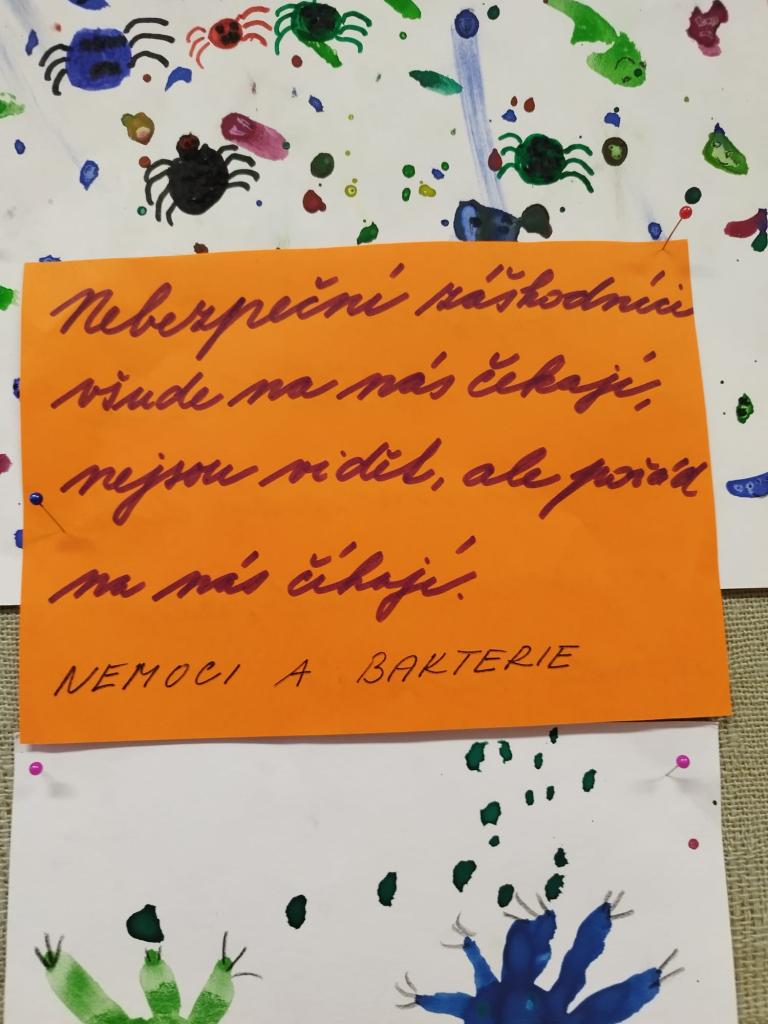 Nebezpeční záškodníci
všude na nás čekají,
nejsou vidět, ale pořád
na nás číhají.
NEMOCI A BAKTERIE